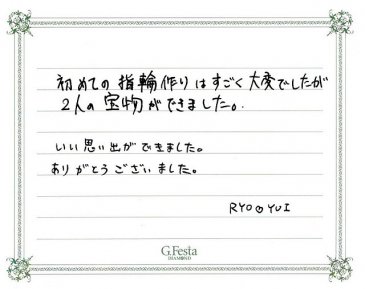 初めての指輪作りはすごく大変でしたが
2人の宝物ができました。
いい思い出ができました。
ありがとうございました。
RYO♡YUI
G.Festa
DIAMOND